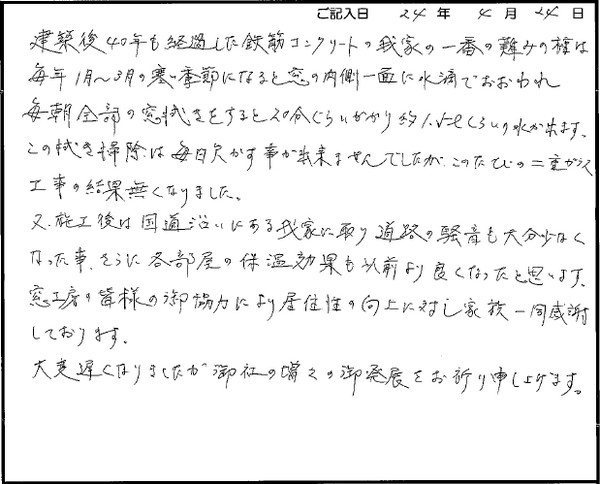 ご記入日 24年 4月 24日
建築後40年も経過した鉄筋コンクリートの我家の一番の難みの種は
毎年1月～3月の寒い季節になると窓の内側一面に水滴でおおわれ
毎朝全部の窓拭きをすると20分ぐらいかかり約1.5ℓくらいの水が出ます。
この拭き掃除は毎日欠かす事が出来ませんでしたが、このたびの二重ガラス
工事の結果無くなりました。
又、施工後は国道沿いにある我家に取り道路の騒音も大分少なく
なった事、さらに各部屋の保温効果も以前より良くなったと思います。
窓工房の皆様の御協力により居住性の向上に対し家族一同感謝
しております。
大変遅くなりましたが御社の増々の御発展をお祈り申し上げます。